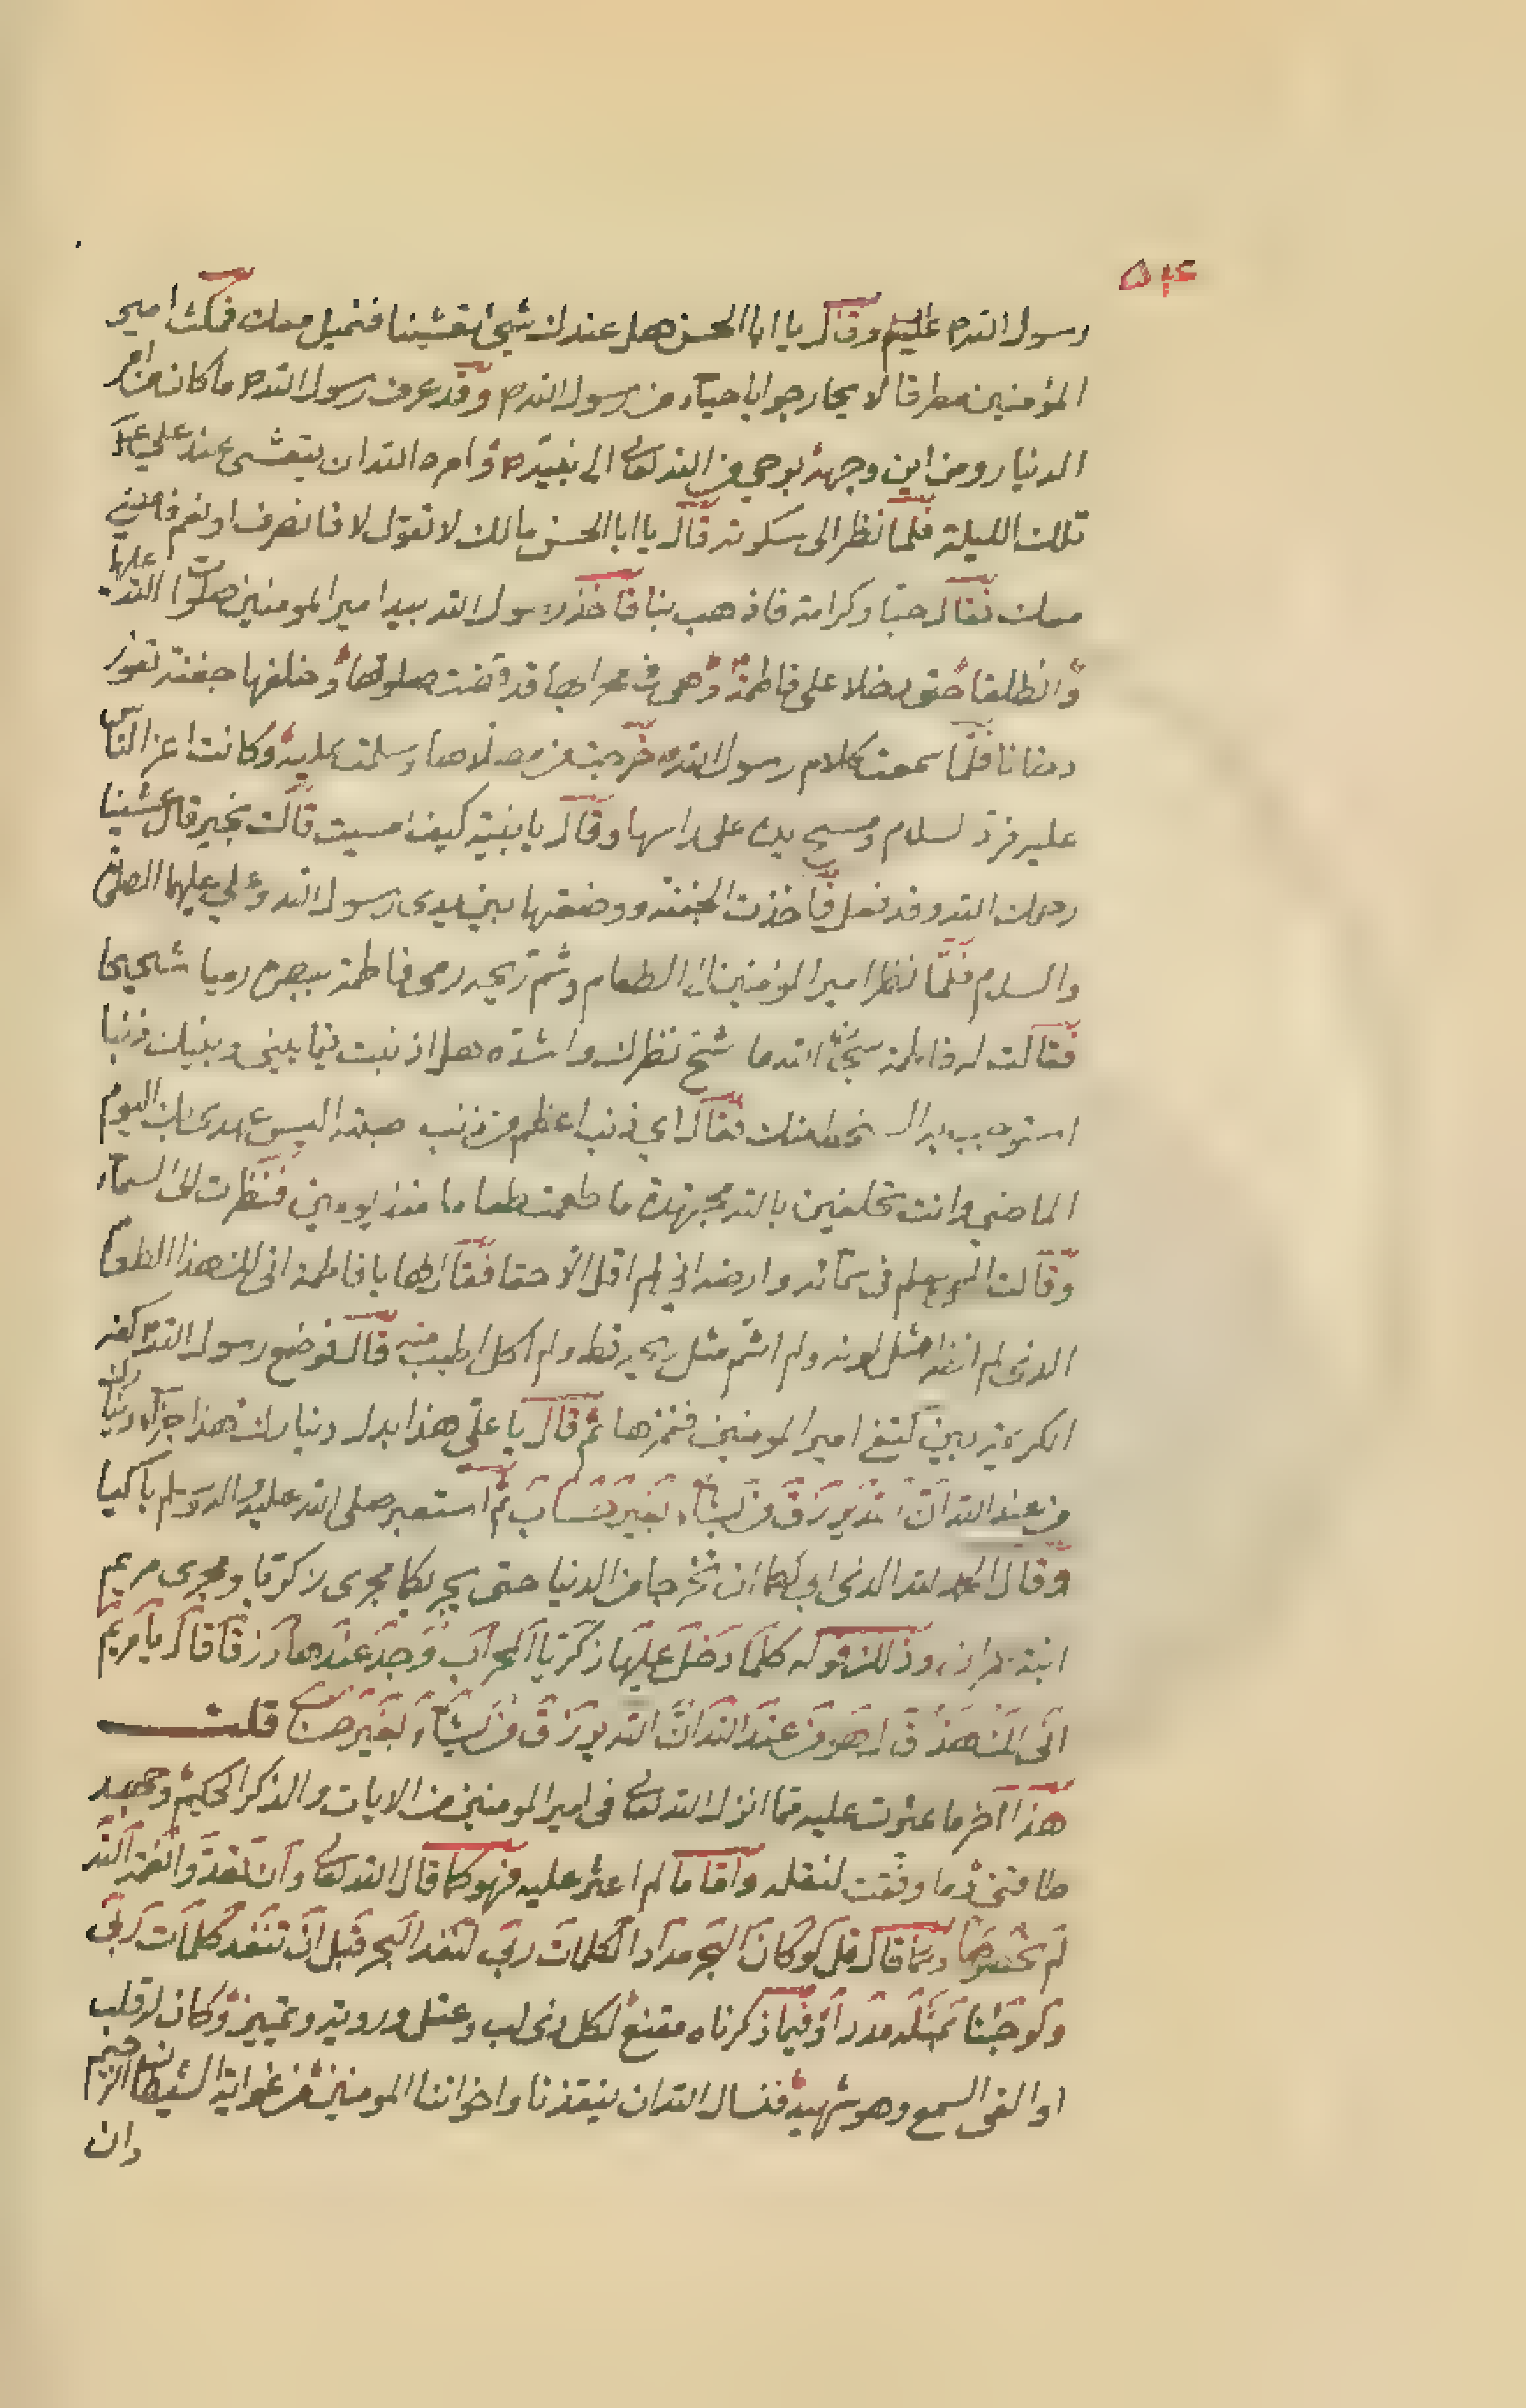 ٥٢٤
رسول الله ص عليهم وقال يا ابا الحسن هل عندك شيئ تعشينا فنميل معك فمكث امير
المؤمنين مطرقا لا يحار جوابا حياء من رسول الله ص وقد عرف رسول الله ص ما كان من امر
الدنيار ومن اين وجهه بوحي من الله تعالى الى نبيه ص وامره الله ان يتعشى عند علي ع
تلك الليلة فلما نظر الى سكوته قال يا ابا الحسن مالك لا تقول لا فانصرف او نعم فامضي
معك فقال حبا وكرامة فاذهب بنا فاخذ رسول الله بيد امير المومنين صلوات الله عليهما
وانطلقا حتى دخلا على فاطمة وهى فى محرابها قد قضت صلوتها وخلفها جفنة تفور
دخانا فلما سمعت كلام رسول الله ص خرجت من مصلاها وسلمت عليه وكانت اعز الناس
عليه فرد السلام ومسح يده على راسها وقال يا بنية كيف امسيت قالت بخير قال عشينا
رحمك الله وقد فعل فاخذت الجفنة ووضعتها بين يدى رسول الله وعلي عليهما الصلوة
والسلام فلما نظر امير المؤمنين الى الطعام وشم ريحه رمى فاطمة ببصره رميا شحيحا
فقالت له فاطمة سبحان الله ما اشح نظرك واشده هل اذنبت فيما بيني وبينك ذنبا
استوجب به السخط منك فقال اي ذنب اعظم من ذنب اليس عهدى بك اليوم
الماضي وانت تحلفين بالله مجتهدة ما طعمت طعاما منذ يومين فنظرت الى السماء
وقالت الهي يعلم فى سمائه وارضه اني لم اقل الا حقا فقال لها يا فاطمة انى لك هذا الطعام
الذى لم انظر مثل لونه ولم اشم مثل ريحه قط ولم آكل اطيب منه قال فوضع رسول الله ص كفه
الكريمة بين كتفي امير المومنين فغمزها ثم قال يا على هذا بدل دينارك هذا جزاء دينارك
من عند الله ان الله يرزق من يشاء بغير حساب ثم استعبر صلى الله عليه واله وسلم باكيا
وقال الحمد لله الذى ابى لكما ان تخرجا من الدنيا حتى يجريكما مجرى زكريا ومجرى مريم
ابنة عمران وذلك قوله كلما دخل عليها زكريا المحراب وجد عندها رزقا قال يا مريم
انى لك هذا قالت هو من عند الله ان الله يرزق من يشاء بغير حساب قلت
هذا آخر ما عثرت عليه مما انزل الله تعالى فى امير المومنين من الايات والذكر الحكيم وجهد
طاقتي وما وفقت لنقله واما ما لم اعثر عليه فهو كما قال الله تعالى وان تعدوا نعمة الله
لم تحصوها وكما قال قل لو كان البحر مدادا لكلمات ربي لنفد البحر قبل ان تنفد كلمات ربي
ولو جئنا بمثله مددا وفيما ذكرناه مقنع لكل ذى لب وعقل وروية وتمييز وكان له قلب
او القى السمع وهو شهيد فنسال الله ان ينقذنا واخواننا المومنين من غواية الشيطان الرجيم
وان